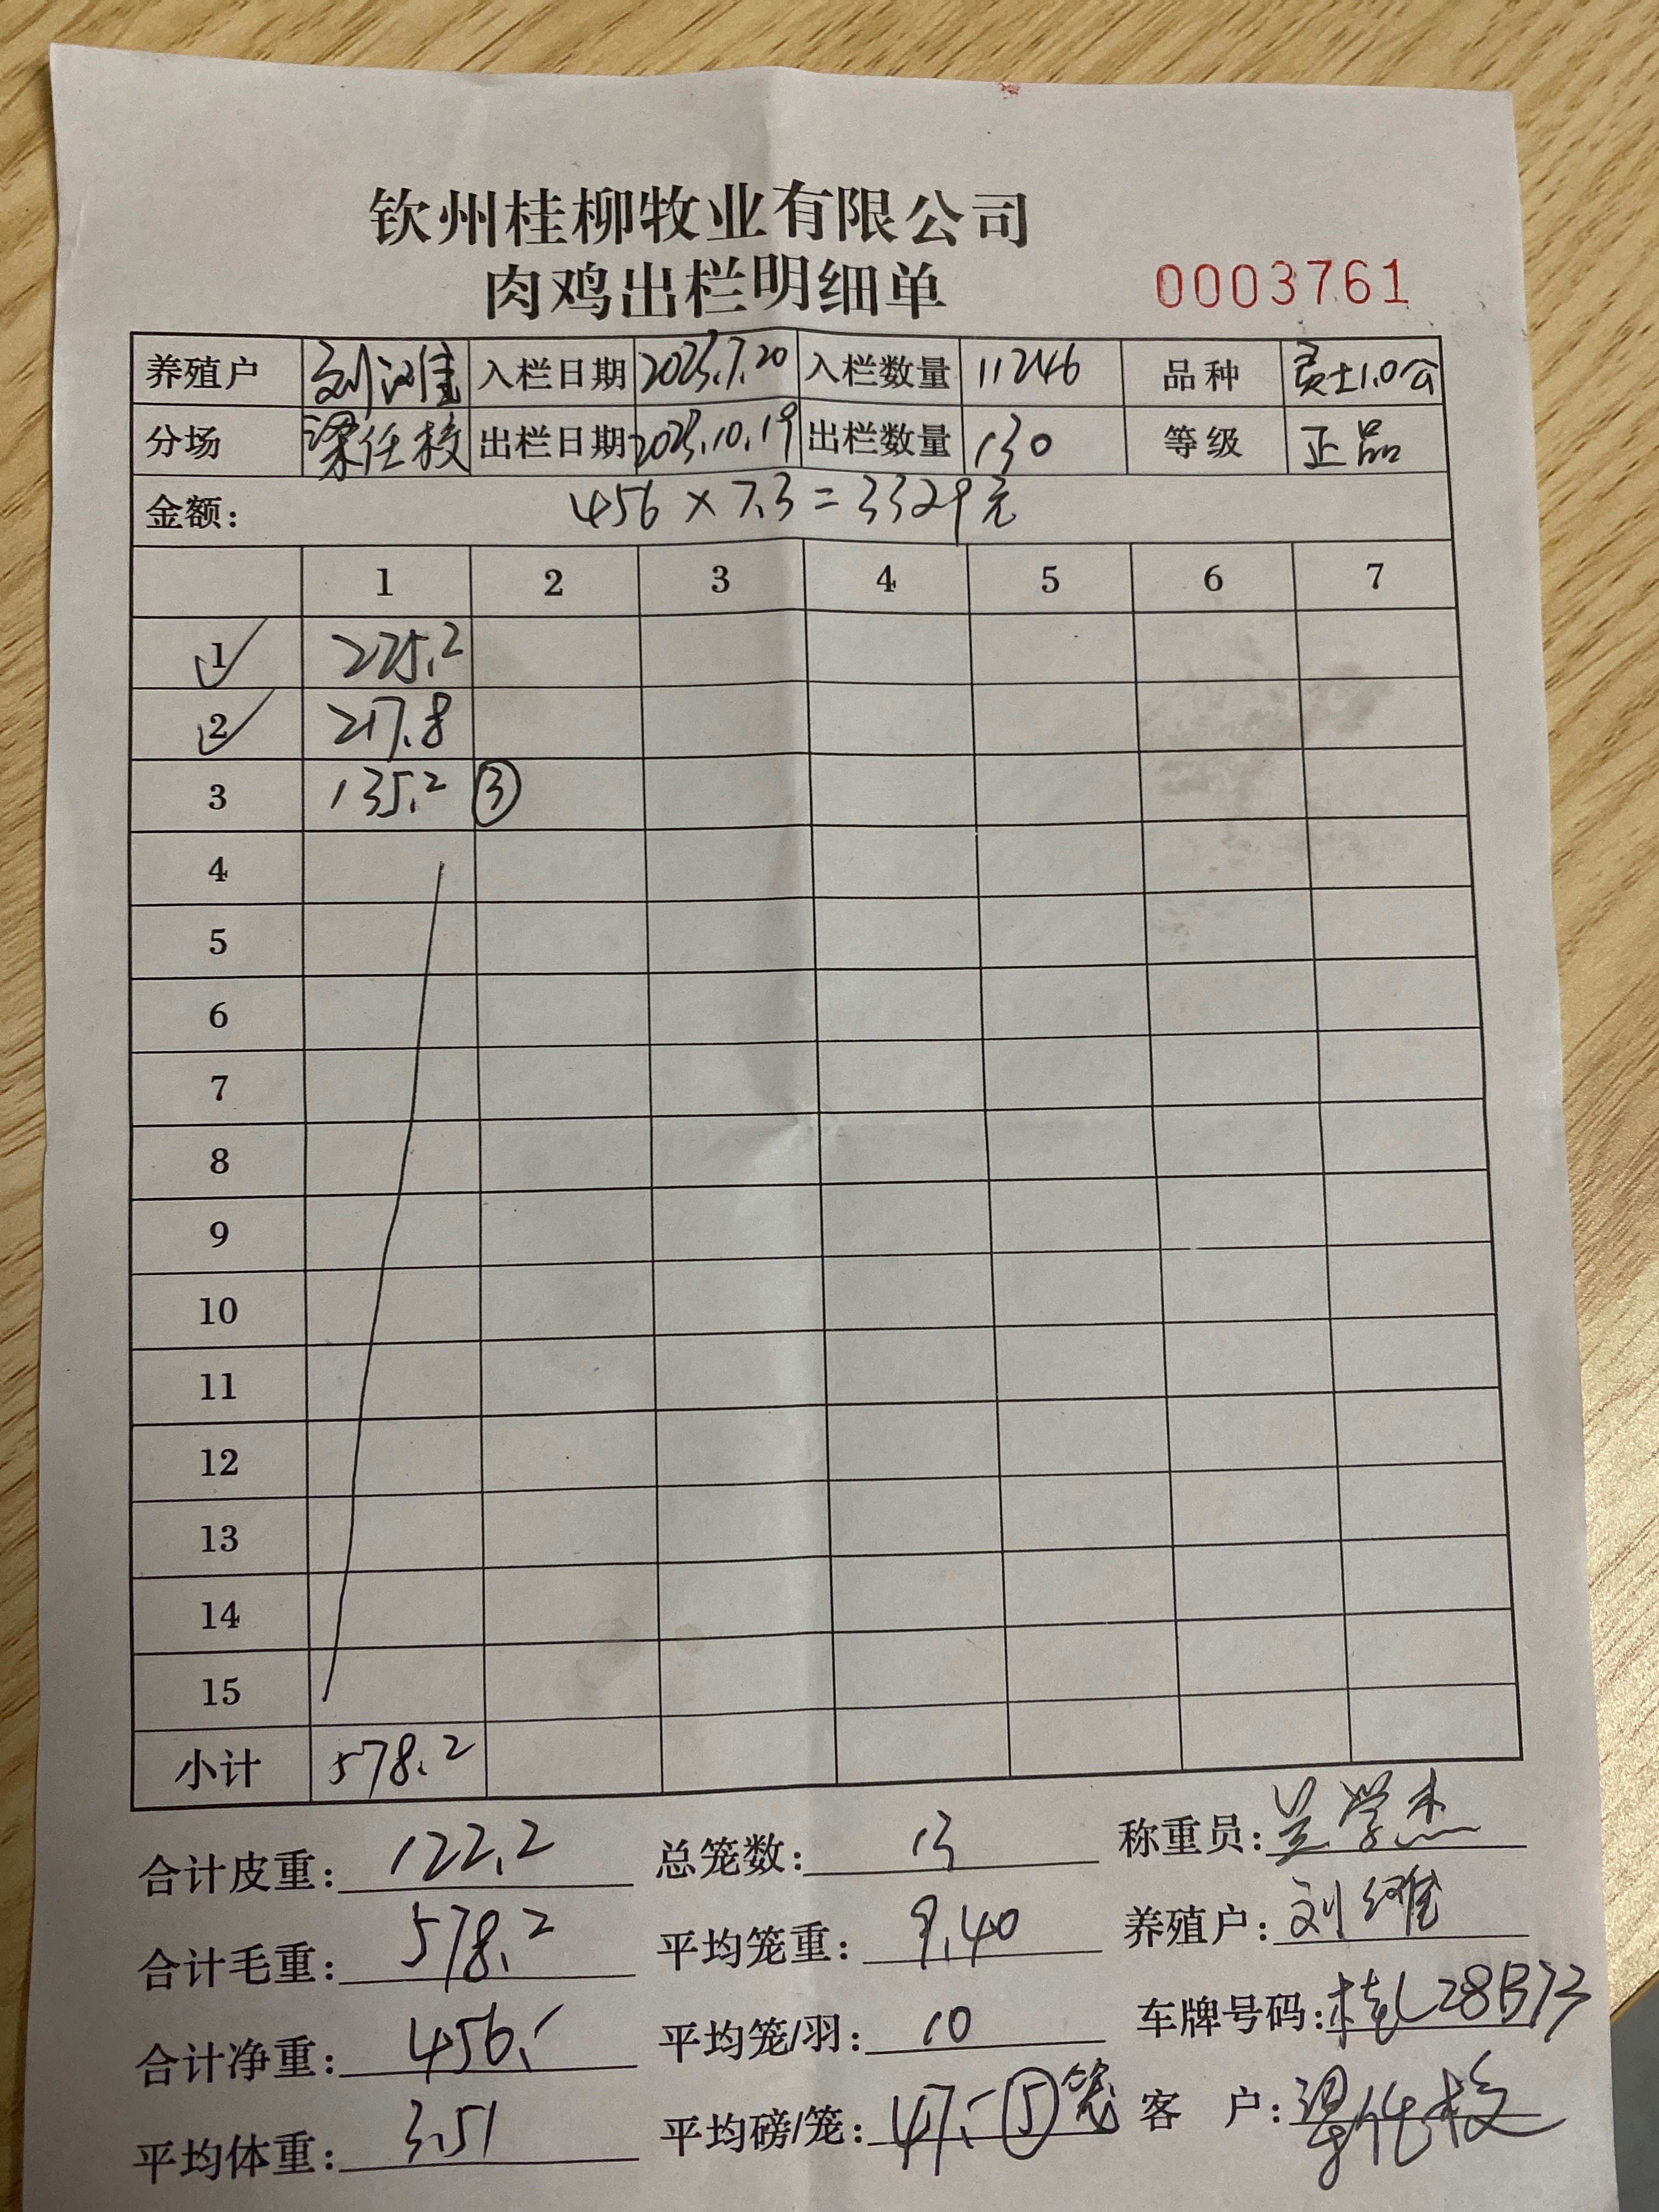 钦州桂柳牧业有限公司
肉鸡出栏明细单 0003761
养殖户 刘 入栏日期 2023.7.20 入栏数量 11246 品种 贵士1.0公
分场 梁任校 出栏日期 2023.10.19 出栏数量 130 等级 正品
金额: 456 × 7.3 = 3329元
1 2 3 4 5 6 7
1 225.2
2 217.8
3 135.2 ③
4
5
6
7
8
9
10
11
12
13
14
15
小计 578.2
合计皮重: 122.2 总笼数: 13 称重员: 吴学杰
合计毛重: 578.2 平均笼重: 9.40 养殖户: 刘
合计净重: 456.- 平均笼/羽: 10 车牌号码: 桂L28B73
平均体重: 3.51 平均磅/笼: 47.- ⑤笼 客 户: 梁任校